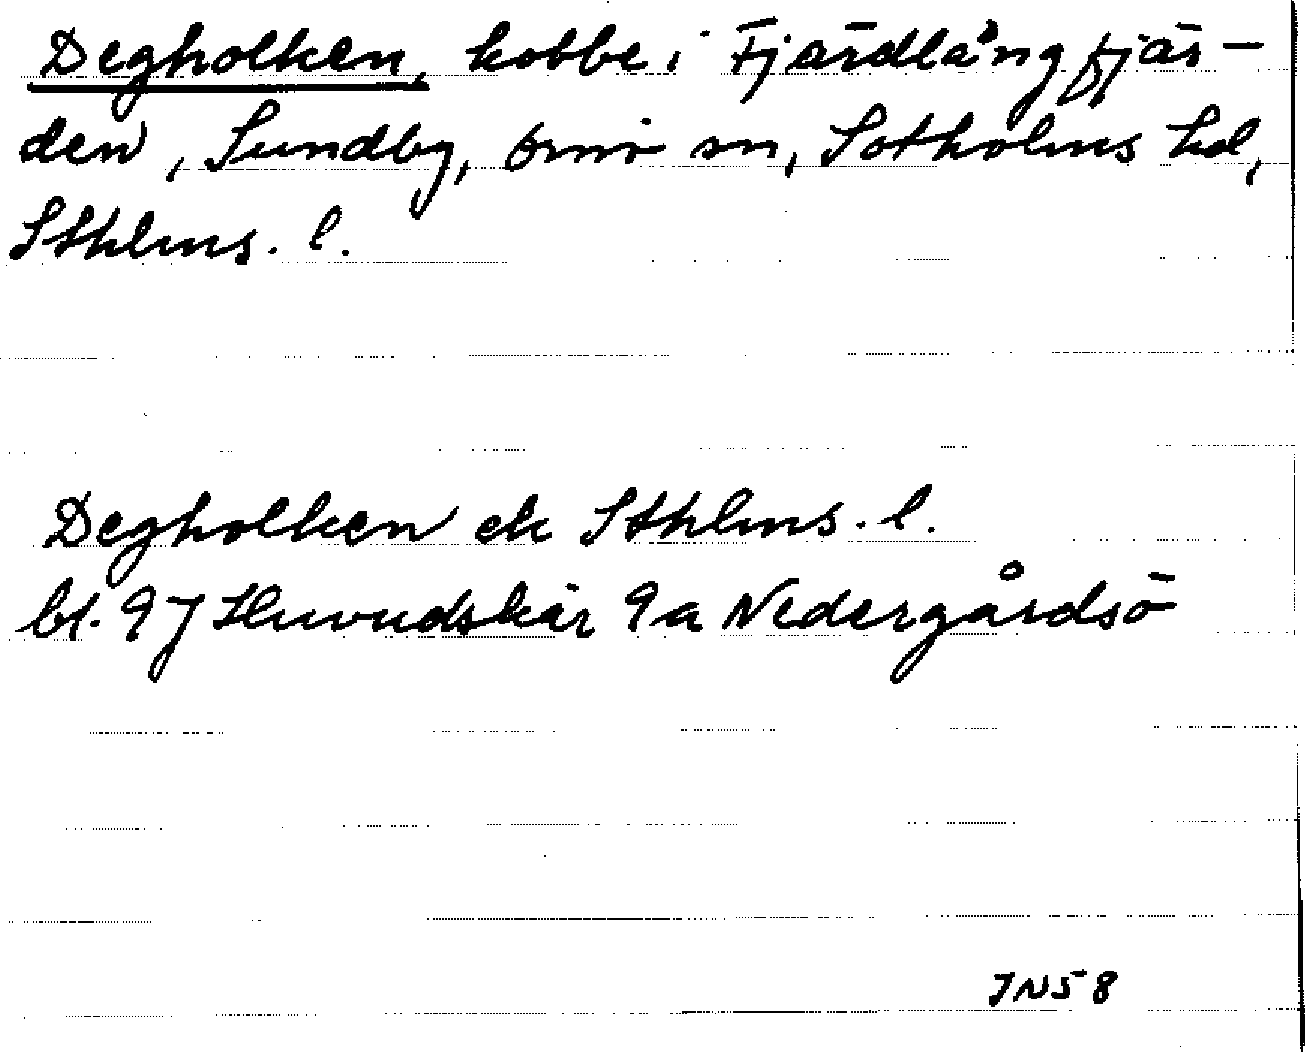 Degholken, kobbe i Fjärdlångfjär-
den, Sundby, Ornö sn, Sotholms hd,
Sthlms. l.
Degholken ek Sthlms. l.
bl. 97 Huvudskär 9a Nedergårdsö
JN58